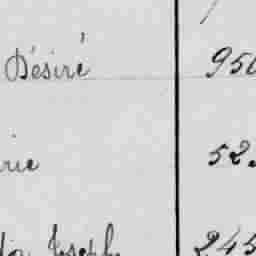 Désiré 950
rie 52
Joseph 245